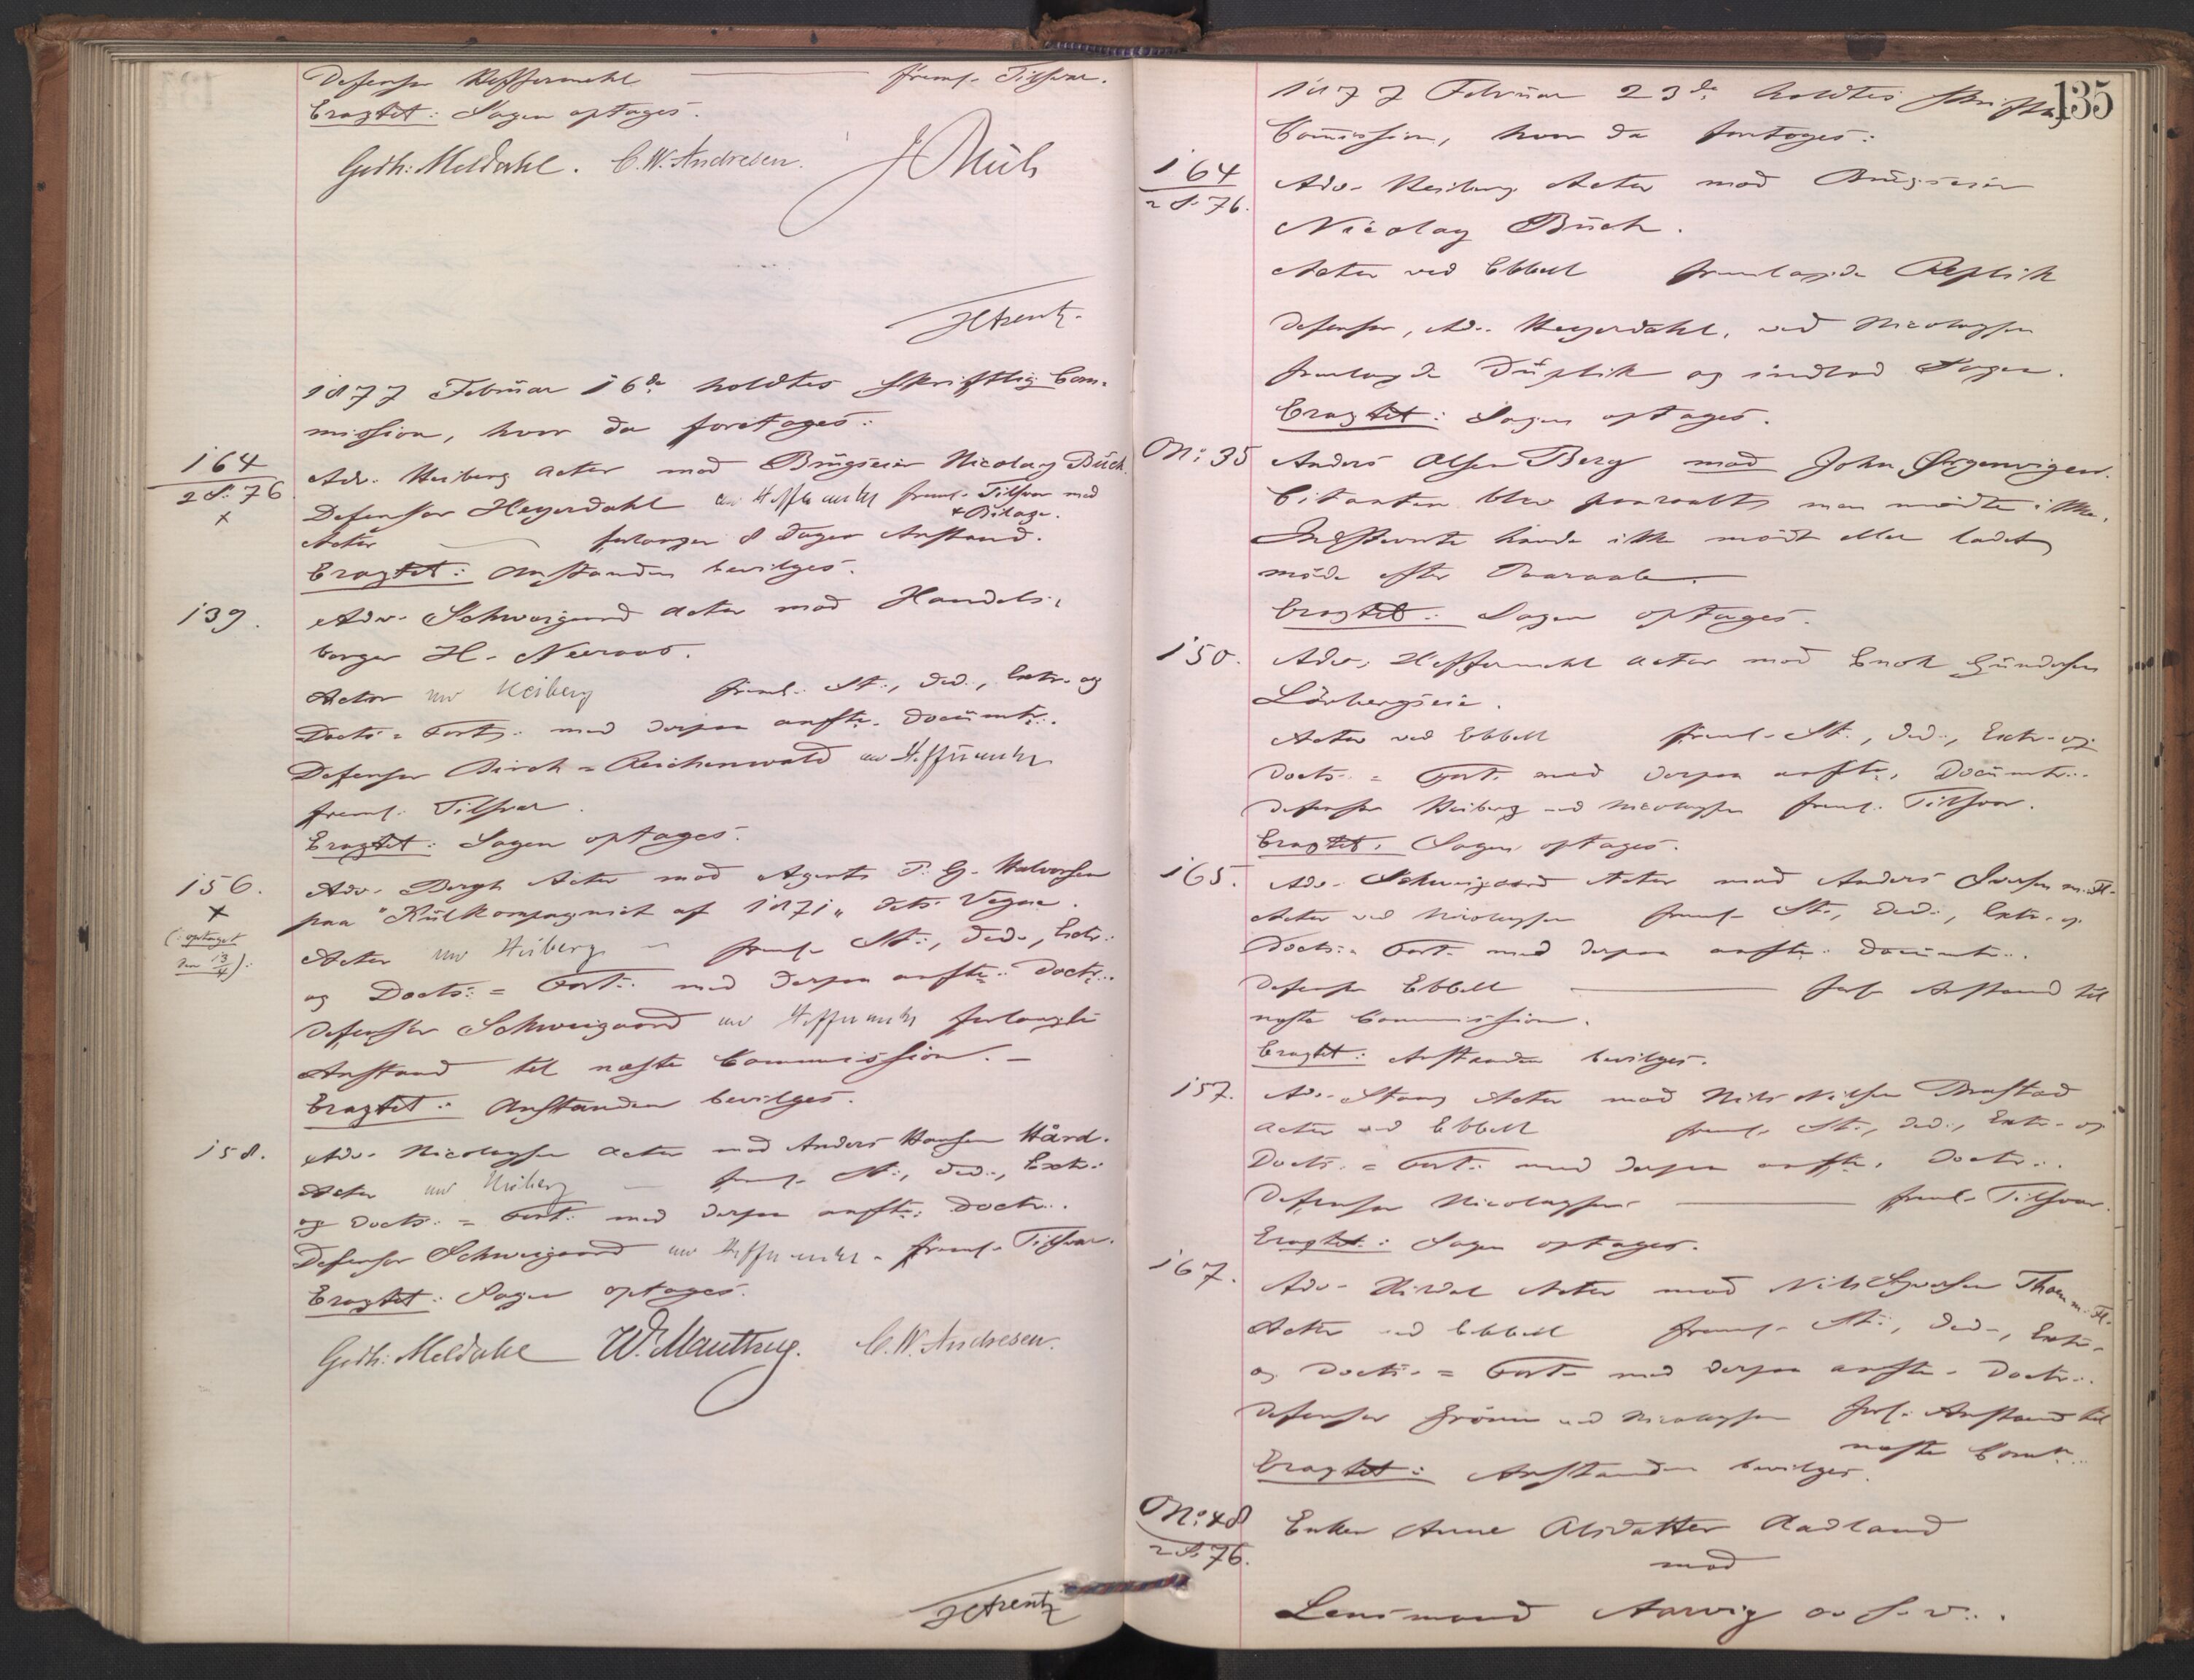 Defensor Heffermehl — freml. Tilsvar.
Eragtet: Sagen optages.
Gerh: Meldahl. C. W. Andresen.
HArentz.
1877 Februar 16de holdtes skriftlig Com-
mission, hvor da foretages:
164
2 S. 76
x
Adv. Heiberg Actor mod Brugseier Nicolay Büch.
Defensor Heyerdahl ved Heffermehl freml. Tilsvar med
x Bilage.
Actor — forlanger 8 Dages Anstand.
Eragtet: Anstanden bevilges.
139.
Adv. Schweigaard Actor mod Handels-
borger H. Neeraas.
Actor ved Heiberg freml. St., Ded., Extr. og
Docts. = Fort. med derpaa anfte. Documtr.
Defensor Birch = Reichenwald ved Heffermehl
freml. Tilsvar.
Eragtet: Sagen optages.
156.
x
(: optaget
den 13/4):
Adv. Bergh Actor mod Agent P. G. Halvorsen
paa "Kulkompagniet af 1871" dets Vegne.
Actor ved Heiberg — freml. St., Ded., Extr.
og Docts. = Fort. med derpaa anfte. Doctr.
Defensor Schweigaard ved Heffermehl forlangte
Anstand til næste Commission. —
Eragtet: Anstanden bevilges.
158.
Adv. Nicolaysen Actor mod Anders Hansen Hård.
Actor ved Heiberg — freml. St., Ded., Extr.
og Docts. = Fort. med derpaa anfte. Doctr.
Defensor Schweigaard ved Heffermehl freml. Tilsvar.
Eragtet: Sagen optages.
Gerh: Meldahl W. Manthey. C. W. Andresen.
HArentz
135
1877 Februar 23de holdtes skriftlig
Commission, hvor da foretoges:
164
2 S. 76.
Adv. Heiberg Actor mod Brugseier
Nicolay Büch.
Actor ved Ebbell fremlagde Replik
Defensor, Adv. Heyerdahl, ved Nicolaysen
fremlagde Duplik og indlod Sagen.
Eragtet: Sagen optages.
No: 35
Anders Olsen Berg mod John
Citanten blev paaraabt, men mødte ikke.
Indstevnte havde ikke mødt eller ladet
møde efter Paaraab.
Eragtet: Sagen optages.
150.
Adv. Heffermehl Actor mod Enok Gundersen
Lövbergseie.
Actor ved Ebbell freml. St., Ded., Extr. og
Docts. = Fort. med derpaa anfte. Documtr.
Defensor Heiberg ved Nicolaysen freml. Tilsvar.
Eragtet: Sagen optages.
165.
Adv. Schweigaard Actor mod Anders Iversen m. Fl.
Actor ved Nicolaysen freml. St., Ded., Extr. og
Docts. = Fort. med derpaa anfte. Documtr.
Defensor Ebbell — forl. Anstand til
næste Commission.
Eragtet: Anstanden bevilges.
157.
Adv. Stang Actor mod Nils Nilsen Brastad
Actor ved Ebbell freml. St., Ded., Extr. og
Docts. = Fort. med derpaa anfte. Doctr.
Defensor Nicolaysen — freml. Tilsvar.
Eragtet: Sagen optages.
167.
Adv. Hirdal Actor mod Nils Syversen Thom m. Fl.
Actor ved Ebbell freml. St., Ded., Extr.
og Docts. = Fort. med derpaa anfte. Doctr.
Defensor Grönn ved Nicolaysen forl. Anstand til
næste Comn.
Eragtet: Anstanden bevilges.
No: 48
2 S. 76.
Enken Anne Olsdatter Aadland
mod
Lensmand Aarvig o. s. v.